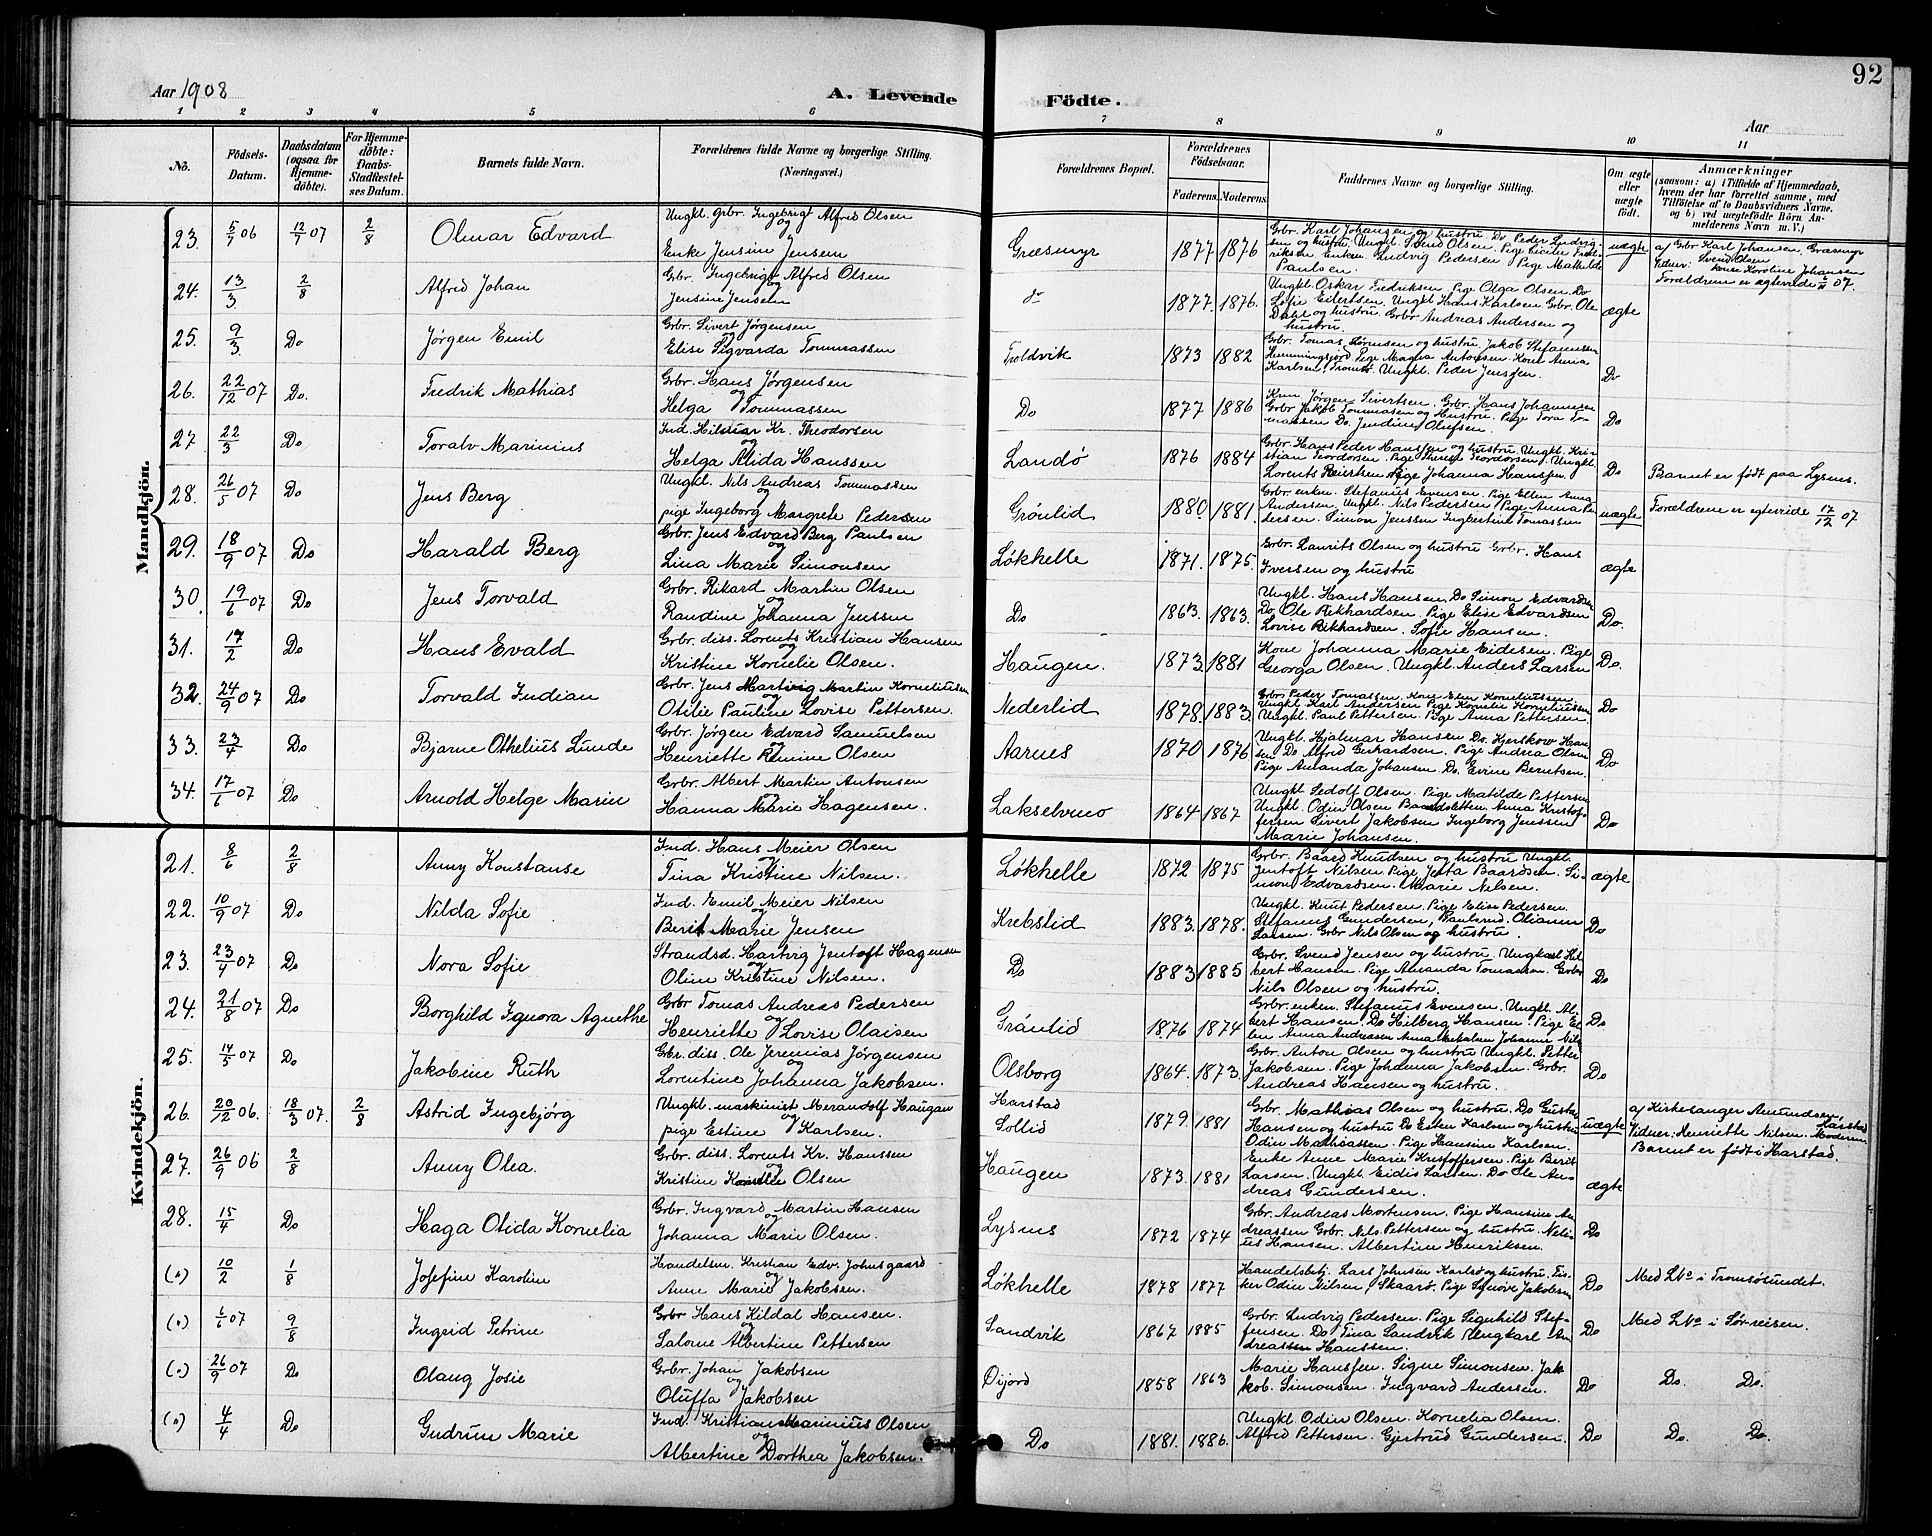 92
Aar 1908
A. Levende Födte.
Aar
1 2 3 4 5 6 7 8 9 10 11
No.
Födsels-Datum.
Daabsdatum (ogsaa for Hjemmedöbte).
For Hjemmedöbte: Daabs-Stadfestelses Datum.
Barnets fulde Navn.
Forældrenes fulde Navne og borgerlige Stilling. (Næringsvei.)
Forældrenes Bopæl.
Forældrenes Födselsaar.
Faderens. Moderens.
Faddernes Navne og borgerlige Stilling.
Om ægte eller uægte födt.
Anmærkninger
(saasom: a) i Tilfælde af Hjemmedaab, hvem der har forrettet samme, med Tilföielse af to Daabsvidners Navne. og b) ved uægtefödte Börn Anmelderens Navn m. V.)
Mandkjön.
23. 5/7 06 12/7 07 2/8 Olmar Edvard Ungkl. Grbr. Ingebrigt Alfred Olsen og Enke Jensine Jensen Græsmyr 1877 1876 Grbr. Karl Johansen og hustru Do Peder Ludvigsen og hustru. Ungkl. Svend Olsen. Pige Cecilie Fredriksen Enken Ludvig Pedersen Pige Mathilde Paulsen. uægte a/ Grbr Karl Johansen, Græsmyr Vidner: Svend Olsen kone Karoline Johansen Forældrene er ægteviede 07.
24. 13/3 2/8 Alfred Johan Grbr. Ingebrigt Alfred Olsen og Jensine Jensen do 1877. 1876. Ungkl. Oskar Fredriksen Pige Olga Olsen. Do Sofie Eilertsen. Ungkl Hans Karlsen Grbr. Ole Dahl og hustru. Grbr Andreas Andersen og hustru. ægte
25. 9/3 Do Jørgen Emil Grbr. Sivert Jørgensen Elise Sigvarda Tommassen Troldvik 1873 1882 Grbr. Tomas Sørensen og hustru. Jakob Stefanussen Hemmingsjord Pige Magna Antonsen. Kone Anna Karlsen, Tromsø. Ungkl. Peder Jenssen. Do
26. 22/12 07 Do. Fredrik Mathias Grbr. Hans Jørgensen og Helga Tommassen Do 1877 1886 Jørgen Sivertsen. Grbr. Hans Johannesen Grbr Jakob Tommasen og Hustru. Pige Tora Tomassen Do. Jendine Olufsen. Do
27 22/3 Do Toralv Marinius Ind. Hilmar Kr. Theodorsen og Helga Alida Hanssen Landø 1876 1884 Grbr. Hans Peder Hanssen og hustru Ungkl. Kristian Teordorsen. Pige Therese Teordorsen. Ungkl. Lorents Pige Johanna Hanssen. Do Barnet er født paa Lysnes.
28. 26/5 07 Do Jens Berg Ungkl. Nils Andreas Tommassen og pige Ingeborg Margrete Pedersen Grønlid 1880. 1881. Grbr. enken. Stefanus Evensen. Pige Ellen Anna Andersen. Ungkl. Nils Pedersen Pige Anna Pedersen. Simon Jenssen Ingbertine Tomassen uægte Forældrene er ægteviede 17/12 07
29. 18/9 07 Do Harald Berg Grbr. Jens Edvard Berg Paulsen og Lina Marie Simonsen Løkhelle 1871. 1875. Grbr. Laurits Olsen og hustru Grbr. Hans Iversen og hustru ægte
30. 19/6 07 Do Jens Torvald Grbr. Rikard Martin Olsen og Randine Johanna Jenssen Do 1863. 1863. Ungkl. Hans Hansen, Do Simon Edvardsen Do Ole Rikhardsen. Pige Elise Edvardsen Lovise Rikhardsen. Sofie Hansen. Do.
31. 17/2 Do Hans Evald Grbr. diss. Lorents Kristian Hansen og Kristine Kornelie Olsen. Haugen. 1873 1881 Kone Johanna Marie Eidesen. Pige Georga Olsen. Ungkl. Anders Larsen Do.
32. 24/9 07 Do Torvald Indian Grbr. Jens Hartvig Martin Korneliussen og Otilie Pauline Lovise Pettersen. Nederlid 1878. 1883. Grbr. Peder Tomassen. Kone Elen Korneliussen Ungkl Karl Andersen Pige Kornelie Korneliussen Ungkl. Paul Pettersen. Pige Anna Pettersen. Do
33. 23/4 Do Bjarne Othelius Lunde Grbr. Jørgen Edvard Samuelsen og Henriette Remine Olsen Aarnes 1870 1876 Ungkl. Hjalmar Hansen Do. Kjerskow Hansen Do Alfred Gerhardsen. Pige Andrea Olsen Pige Amanda Johansen. Do. Evine Berntsen. Do
34. 17/6 07 Do Arnold Helge Marin Grbr. Albert Martin Antonsen og Hanna Marie Hagensen. Lakselvmo 1864 1867 Ungkl Sedolf Olsen. Pige Matilde Pettersen Ungkl. Odin Olsen Anna Kristoffersen Sivert Jakobsen Ingeborg Jenssen Marie Johansen. Do
Kvindekjön.
21. 8/6 2/8 Anny Konstanse Ind. Hans Meier Olsen og Tina Kristine Nilsen. Løkhelle 1872 1875 Grbr. Baard Knudsen og hustru Ungkl. Jentoft Nilsen. Pige Jetta Baardsen. Simon Edvardsen. Marie Nelsen. ægte
22. 10/9 07 Do Nilda Sofie Ind. Emil Meier Nilsen og Berit Marie Jensen Krebslid 1883. 1878. Ungkl. Knut Pedersen. Pige Elise Pedersen. Stefanus Gundersen, Olianna Larsen. Grbr Nils Olsen og hustru. Do
23. 23/4 07 Do Nora Sofie Strandsd. Hartvig Jentoft Hagensen og Oline Kristine Nilsen. Do 1883 1885 Grbr. Svend Jensen og hustru. Ungkarl Hilbert Hansen. Pige Amanda Tomasson. Grbr Nils Olsen og hustru. Do
24. 21/8 07 Do Borghild Ignora Agnethe Grbr Tomas Andreas Pedersen og Henriette Lovise Olaisen Grønlid 1876 1874 Grbr. enken. Stefanus Evensen. Ungkl. Albert Hansen. Do Hilberg Hansen. Pige Ellen Anna Andreasen Anna Mikalsen Johanne Nils Do
25. 14/5 07 Do Jakobine Ruth Gbr. diss. Ole Jeremias Jørgensen og Lorentine Johanna Jakobsen. Olsborg 1864. 1873. Grbr. Anton Olsen og hustru Ungkl. Petter Jakobsen. Pige Johanna Jakobsen. Grbr. Andreas Hansen og hustru. Do
26. 20/12 06. 18/3 07. 2/8 Astrid Ingebjørg Ungkl. maskinist Merandolf Haugan og pige Estine Karlsen. Harstad Sollid 1879. 1881 Grbr. Mathias Olsen og hustru. Do Gustav Hansen og hustru Do Esten Karlsen og hustru Odin Mathiassen. Pige Hansine Karlsen. uægte a/ Kirkesanger Amundsen, Harstad Vidner: Henriette Nilsen. Moderen Barnet er født i Harstad.
27. 26/9 06 2/8 Anny Olea. Grbr. diss. Lorents Kr. Hanssen og Kristine Kornelie Olsen Haugen 1873. 1881 Enke Anne Marie Kristoffersen. Pige Berit Larsen. Ungkl. Eidis Larsen. Do Ole Andreas Gundersen. ægte
28. 15/4 Do Haga Otida Kornelia Grbr. Ingvard Martin Hansen og Johanna Marie Olsen. Lysnes 1872 1874 Grbr. Andreas Mortensen. Pige Hansine Andreassen Grbr. Nels Pettersen og hustru. Nelius Hansen. Albertine Henriksen. Do
(a) 10/2 1/8 Josefine Karoline Handelsm. Kristian Edv. Johnsgaard og Anne Marie Jakobsen. Løkhelle 1878 1877 Handelsbetj. Lars Johnsen Karlsø og hustru. Fisker Odin Nilsen, Skaarø. Pige Synøve Jakobsen Do Med No i Tromsøsundet.
(o) 6/6 07 9/8 Ingrid Petrine Grbr Hans Kildal Hansen. og Salome Albertine Pettersen Sandvik 1867 1885 Grbr. Ludvig Pedersen. Pige Signhild Steffensen. Do Tina Sandvik Ungkarl Andreassen Hanssen. Do Med No i Sørreisen.
(o) 26/9 07 Do Olaug Josie Grbr. Johan Jakobsen og Oluffa Jakobsen Øijord 1858 1863 Marie Hanssen. Signe Simonsen. Jakob. Simonsen. Ingvard Andersen. Do Do. Do.
(o) 4/4 Do Gudrun Marie Ind. Kristian Marinius Olsen og Albertine Dorthea Jakobsen. Do 1881. 1886. Ungkl. Odin Olsen. Kornelia Olsen. Alfred Pettersen. Gjertrud Gundersen. Do Do. Do.